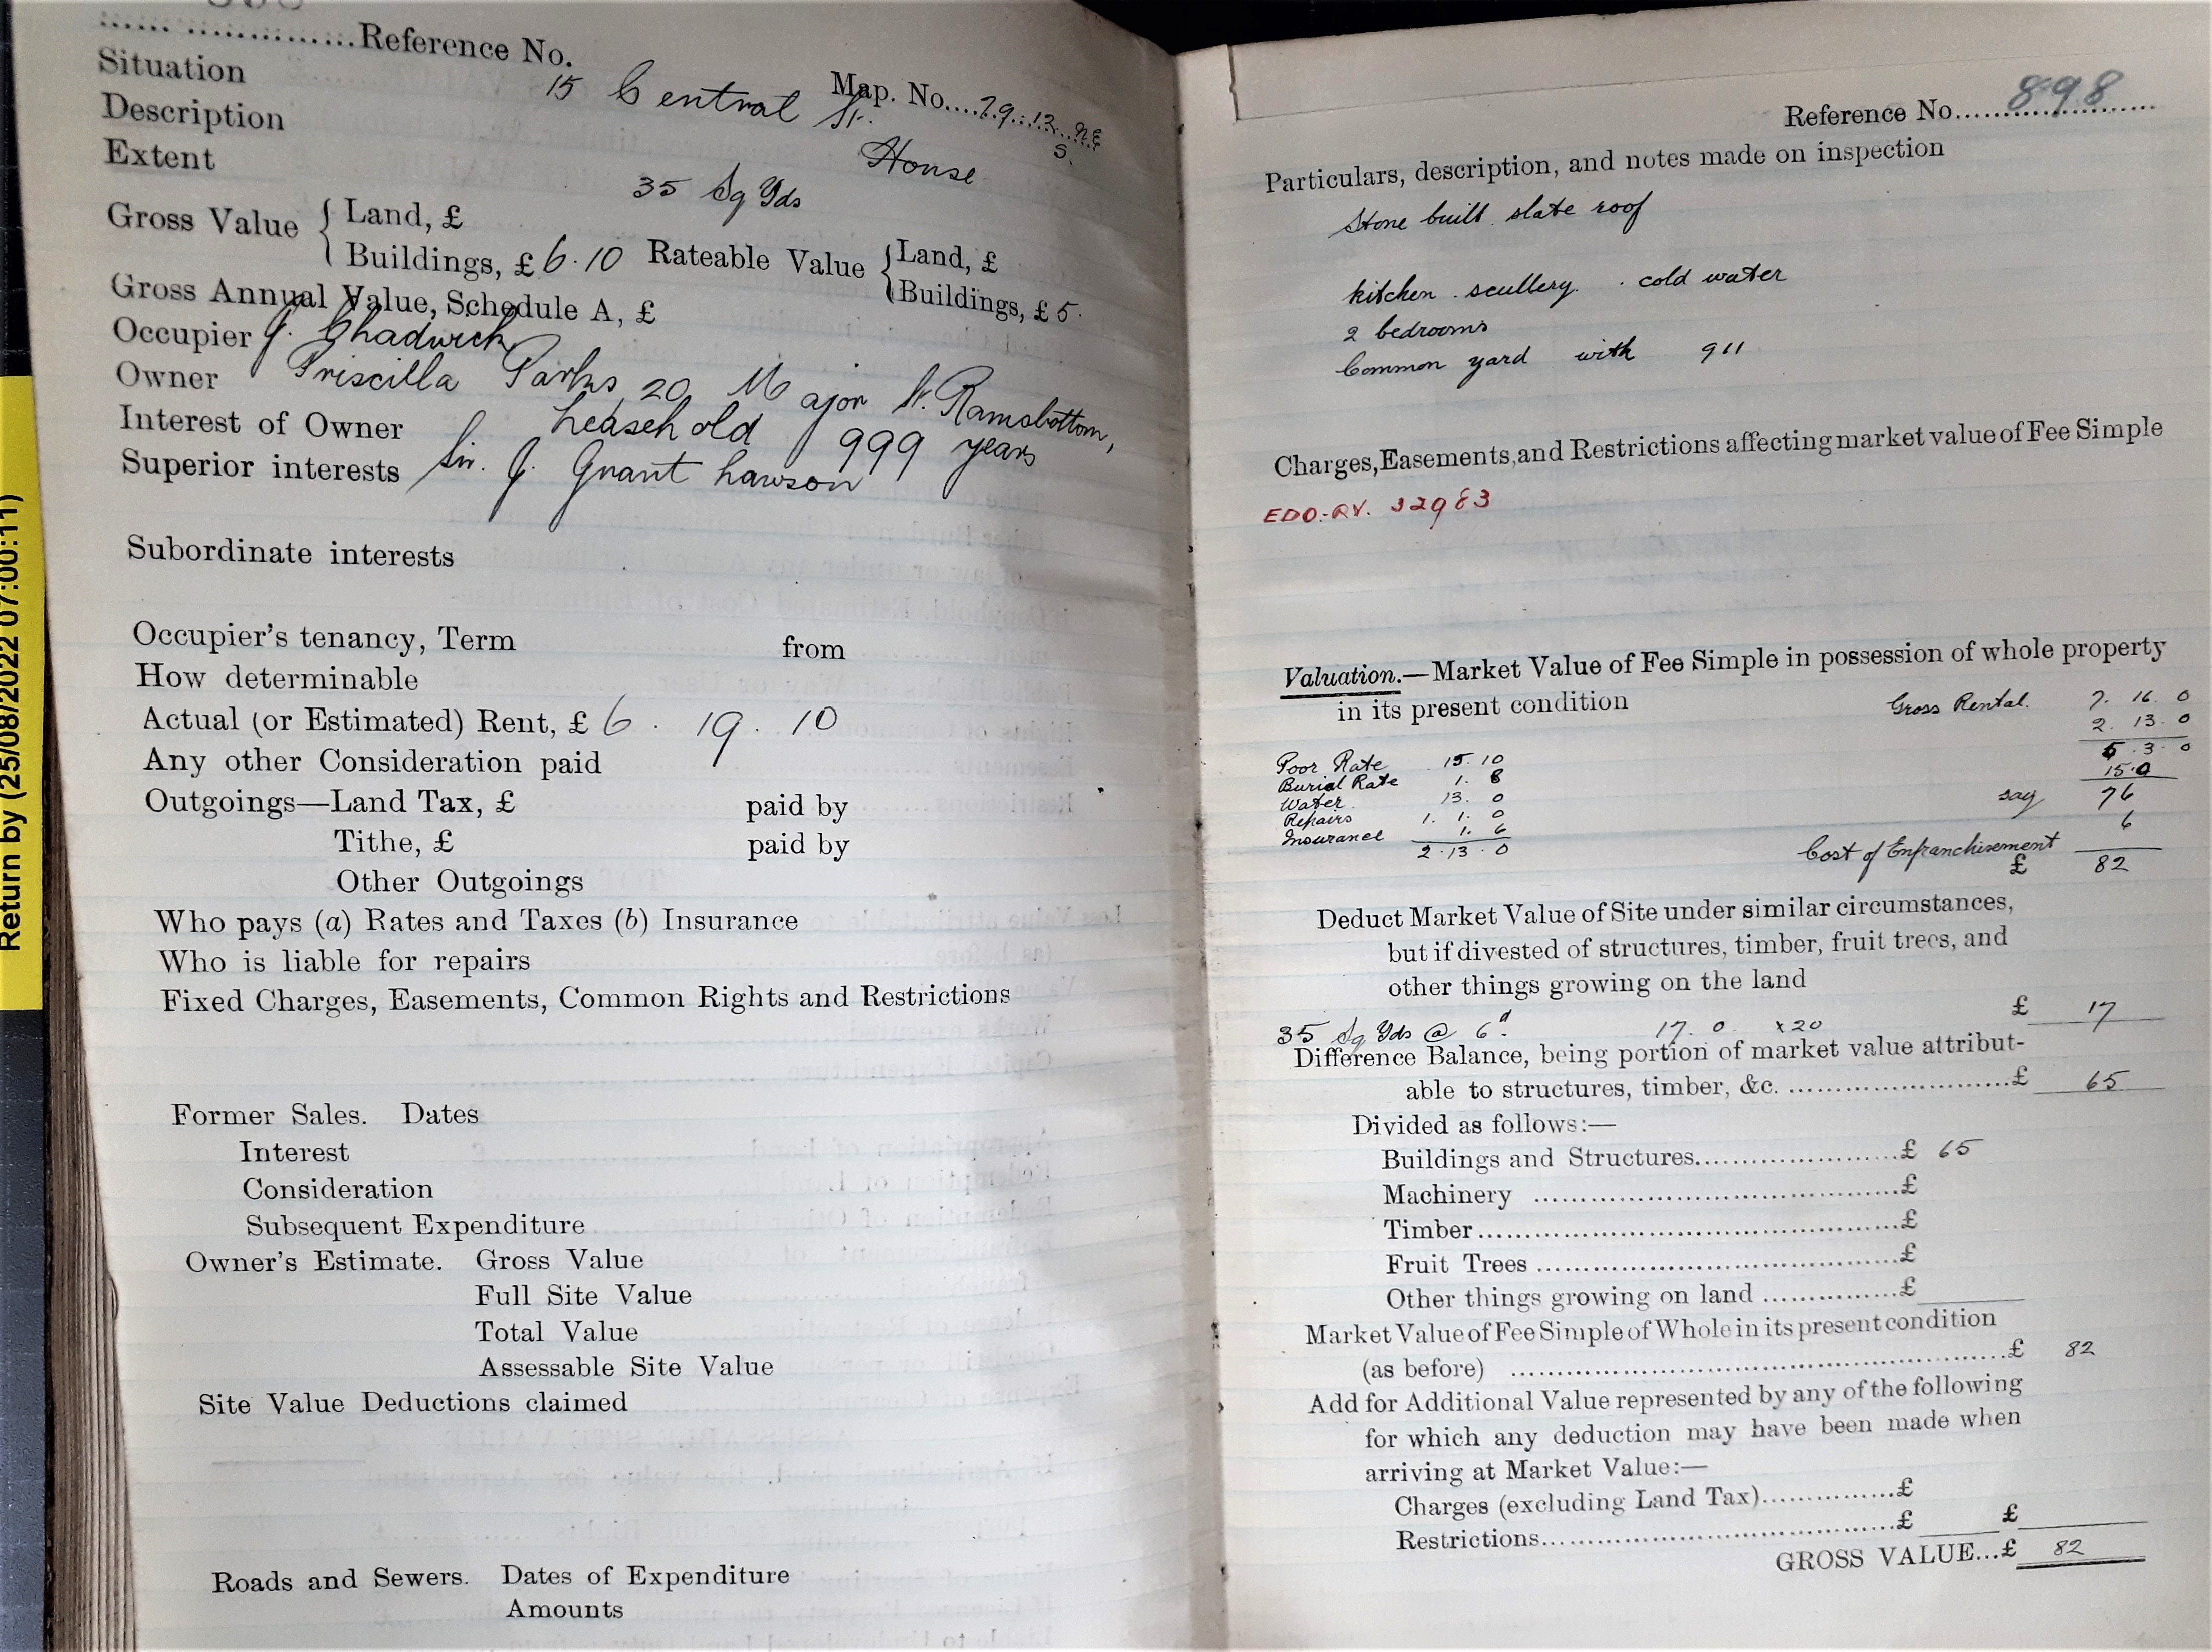 Return by (25/08/2022 07:00:11)
Reference No.
Map. No....79.13 NE
Situation 15 Central St.
S.
Description House
Extent 35 Sq Yds
Gross Value { Land, £
Buildings, £ 6.10 Rateable Value { Land, £
Buildings, £ 5.
Gross Annual Value, Schedule A, £
Occupier J. Chadwick
Owner Priscilla Parks, 20 Major St. Ramsbottom,
Interest of Owner Leasehold 999 years
Superior interests Sir. J. Grant Lawson
Subordinate interests
Occupier's tenancy, Term from
How determinable
Actual (or Estimated) Rent, £ 6. 19. 10
Any other Consideration paid
Outgoings—Land Tax, £ paid by
Tithe, £ paid by
Other Outgoings
Who pays (a) Rates and Taxes (b) Insurance
Who is liable for repairs
Fixed Charges, Easements, Common Rights and Restrictions
Former Sales. Dates
Interest
Consideration
Subsequent Expenditure
Owner's Estimate. Gross Value
Full Site Value
Total Value
Assessable Site Value
Site Value Deductions claimed
Roads and Sewers. Dates of Expenditure
Amounts
Reference No. 898
Particulars, description, and notes made on inspection
Stone built slate roof
kitchen. scullery. cold water
2 bedrooms
Common yard with 911
Charges, Easements, and Restrictions affecting market value of Fee Simple
EDO. RV. 32983
Valuation.—Market Value of Fee Simple in possession of whole property
in its present condition Gross Rental. 7. 16. 0
2. 13. 0
Poor Rate 15. 10 5. 3. 0
Burial Rate 1. 8 15.0
Water 13. 0 say 76
Repairs 1. 1. 0 6
Insurance 1. 6 Cost of Enfranchisement
2. 13. 0 £ 82
Deduct Market Value of Site under similar circumstances,
but if divested of structures, timber, fruit trees, and
other things growing on the land
£ 17
35 Sq Yds @ 6d. 17. 0 x20
Difference Balance, being portion of market value attribut-
able to structures, timber, &c. £ 65
Divided as follows:—
Buildings and Structures £ 65
Machinery £
Timber £
Fruit Trees £
Other things growing on land £
Market Value of Fee Simple of Whole in its present condition
(as before) £ 82
Add for Additional Value represented by any of the following
for which any deduction may have been made when
arriving at Market Value:—
Charges (excluding Land Tax) £
Restrictions £ £
GROSS VALUE...£ 82